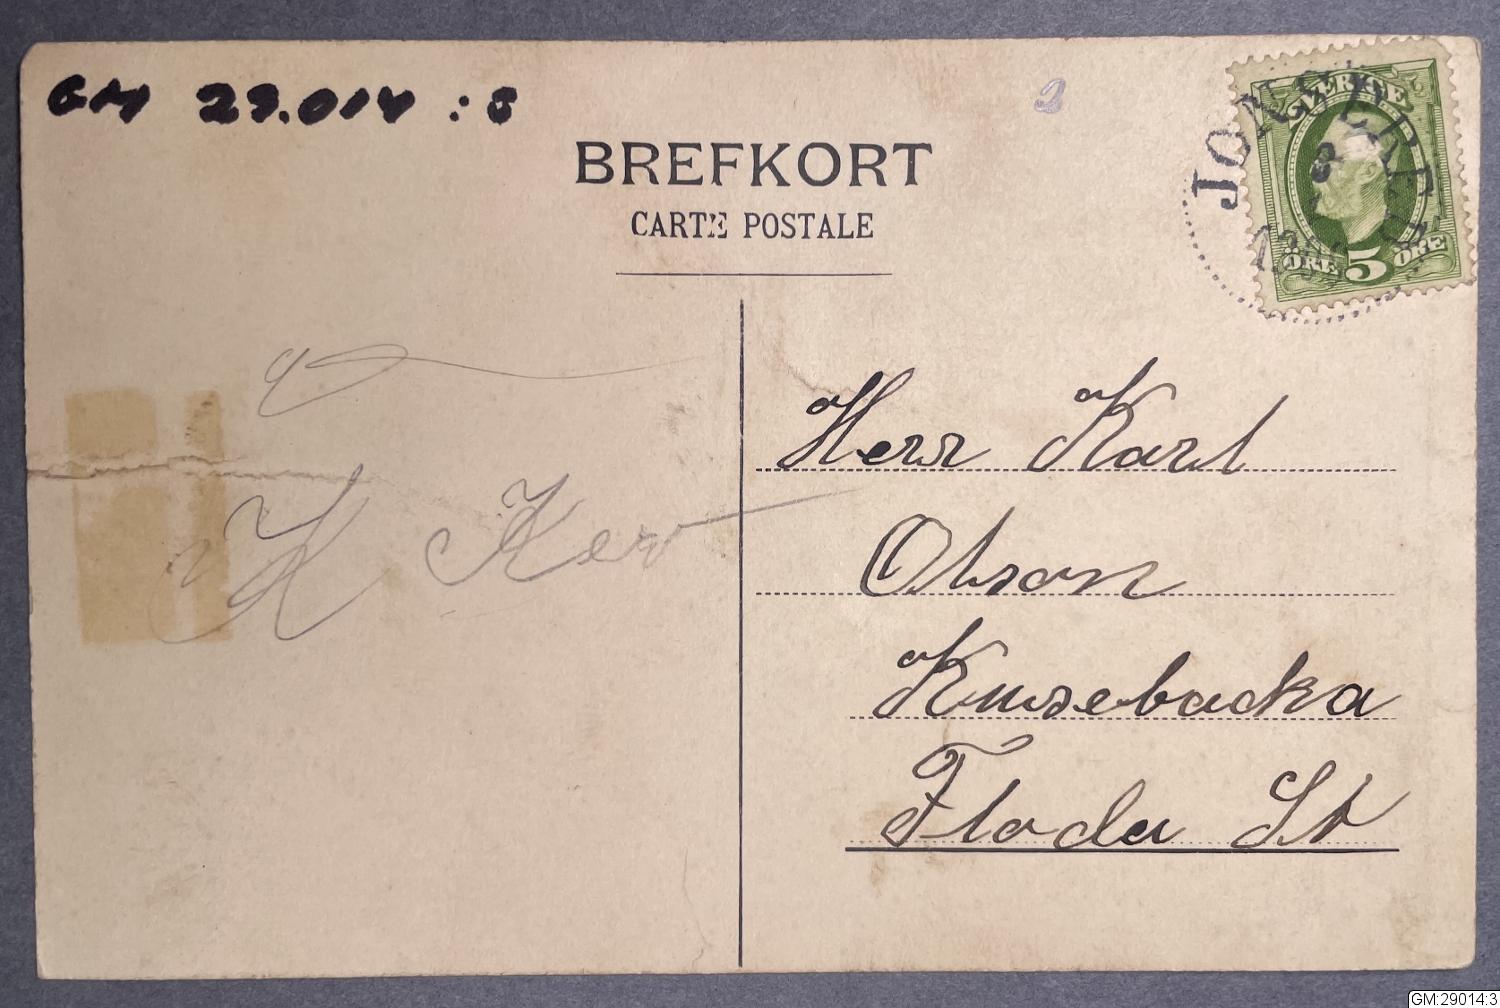 GM 29.014 : 3
BREFKORT
CARTE POSTALE
SVERIGE
ÖRE 5 ÖRE
JONSERED
3
Herr Karl
Olson
Kusebacka
Floda St
GM:29014:3